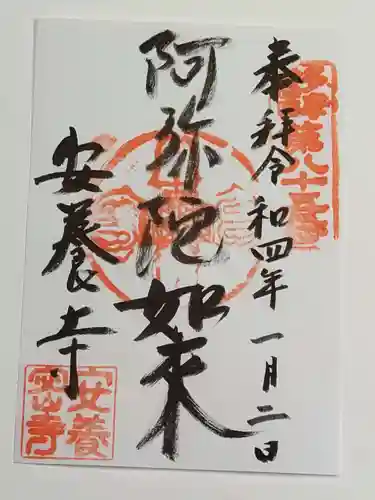 奉拝令和四年一月二日
阿弥陀如来
安養寺
安養寺